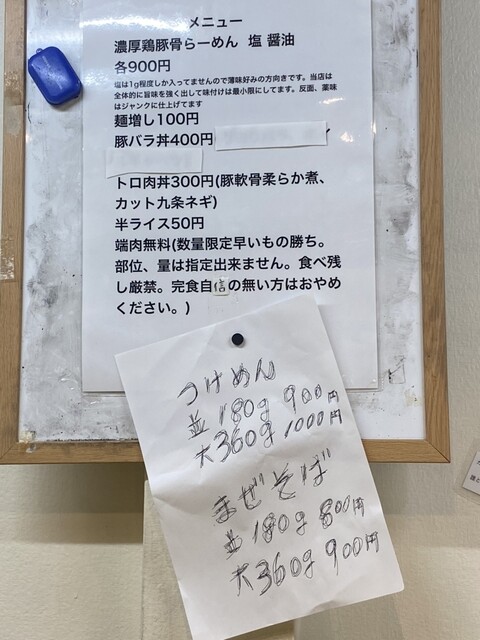 メニュー
濃厚鶏豚骨らーめん 塩 醤油
各900円
塩は1g程度しか入ってませんので薄味好みの方向きです。当店は
全体的に旨味を強く出して味付けは最小限にしてます。反面、薬味
はジャンクに仕上げてます
麺増し100円
豚バラ丼400円
トロ肉丼300円(豚軟骨柔らか煮、
カット九条ネギ)
半ライス50円
端肉無料(数量限定早いもの勝ち。
部位、量は指定出来ません。食べ残
し厳禁。完食自信の無い方はおやめ
ください。)
つけめん
並180g 900円
大360g 1000円
まぜそば
並180g 800円
大360g 900円